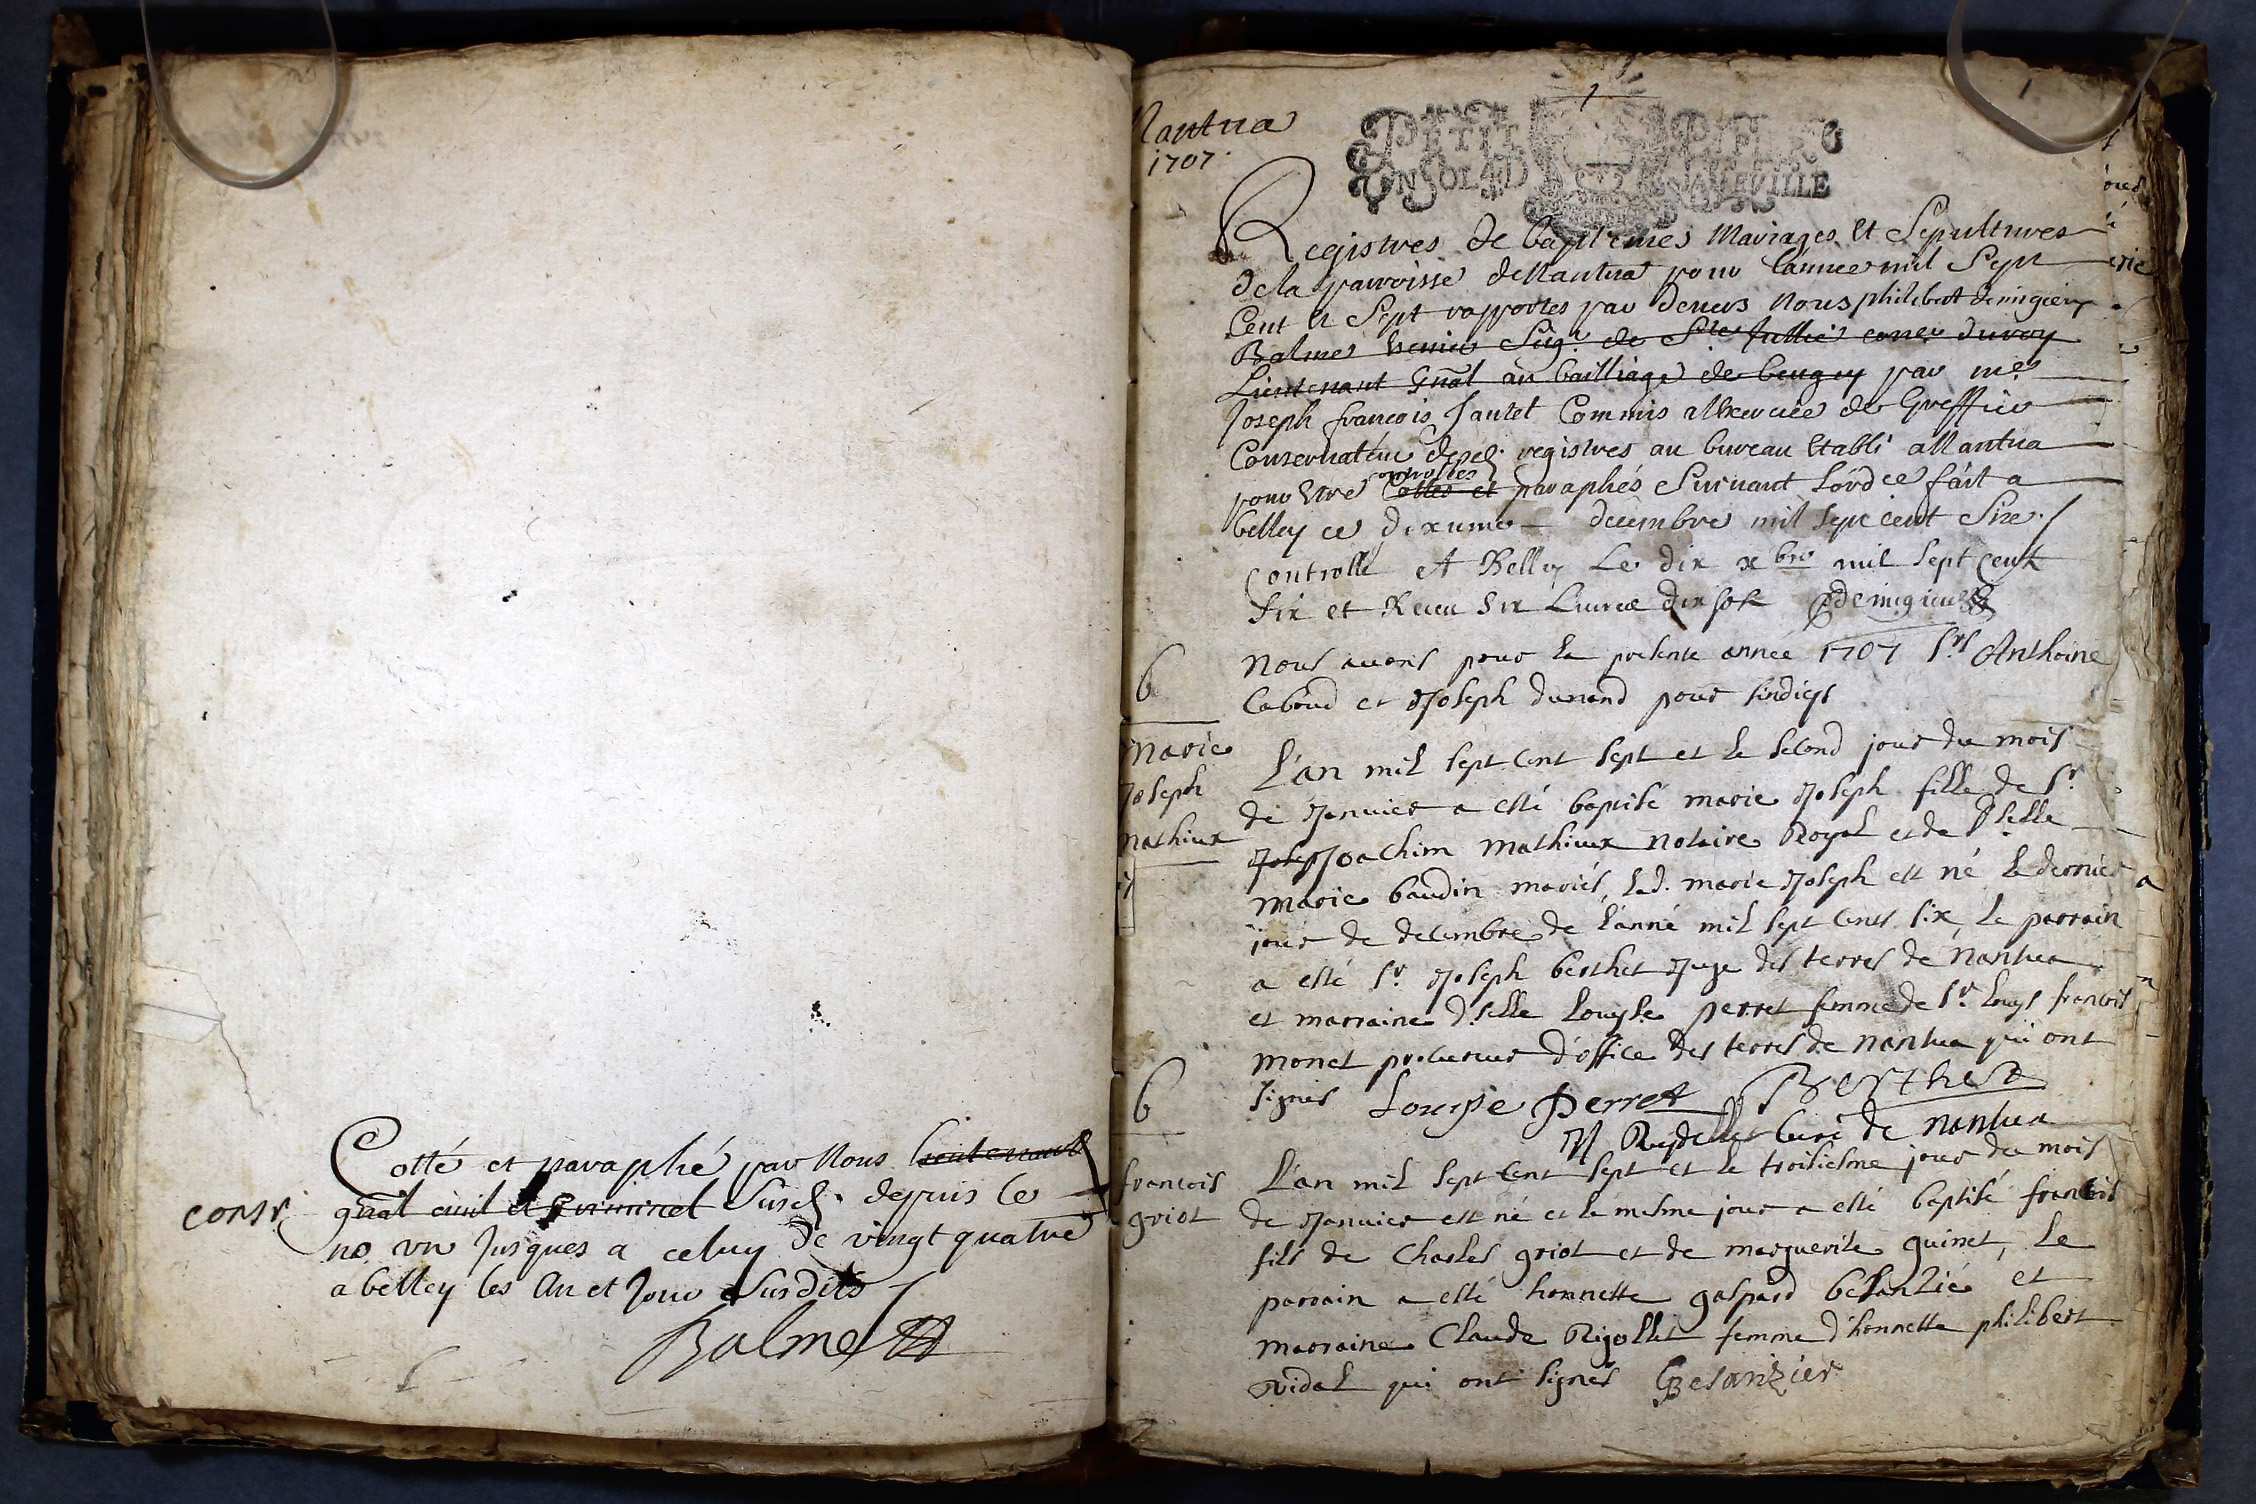 Cotté et paraphé par Nous lieutenant
gnãl civil et Criminel Susd. depuis le
consr.
no. un Jusques a celuy de vingt quatre
a belley les An et Jour Susdits
Balme
1
1
Nantua
1707.
PETIT PAPIER
UN SOL
Registres de baptemes Mariages et Sepultures
de la parroisse de Nantua pour l'annee mil Sept
Cent et Sept rapportes par devers Nous philibert
Balme Seigr. de Ste Jullie conser du roy
Lieutenant Gnãl au bailliage de beugey par me
Joseph francois Jantet Commis a l'exercice de Greffier
Conservateur desd. registres au bureau Etabli a Nantua
controlles
pour Etre Cottes et paraphés Suivant l'ord ce fait a
belley ce dixieme decembre mil Sept cent Six
Controllé A Belley Le dix xbre mil Sept Cent
Six et Receu Six Livres dix sols
Nous avons pour la presente année 1707 Srs Anthoine
Caboud et Joseph Durand pour sindics
6
Marie
Joseph
Mathieux
L'an mil Sept Cent Sept et le second jour du mois
de Janvier a esté baptisé marie Joseph fille de Sr.
Josep Joachim Mathieux Notaire Royal et de Dlelle
Marie baudin mariés, lad. marie Joseph est né le dernier
jour de decembre de l'anné mil sept cents six, le parrain
a esté Sr. Joseph berthet Juge des terres de Nantua
et marraine d.elle Louyse perret femme de Sr. Louys francois
monet procureur d'office des terres de nantua qui ont
signés Louyse Perret Berthet
Curé de nantua
6
francois
griot
L'an mil Sept Cent Sept et le troisiesme jour du mois
de Janvier est né et le mesme jour a esté baptisé francois
fils de Charles griot et de marguerite guinet, le
parrain a esté honnette gaspard besanzié et
marraine Claude Rigollet femme d'honnette philibert
vidal qui ont signés GBesanzier